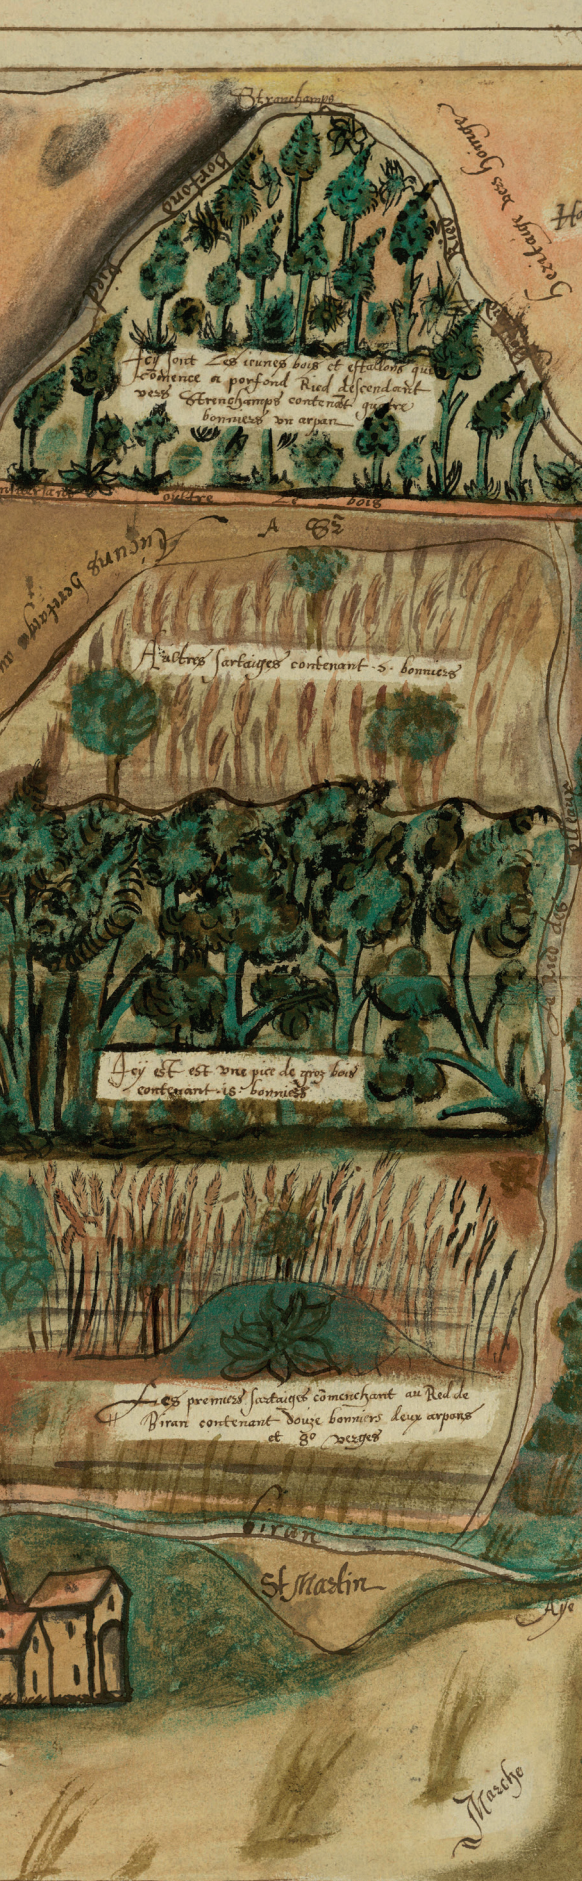 Stranchamps
Porfond
Ried
Heritaige vers hoinge
Ried
Icy sont Les ieunes bois et estallons que
cōmence a porfond Ried descendant
vers Strenchamps contenāt quattre
bonniers vn arpan
oultre Le bois
A St
Aucuns heritaige au
Aultres sartaiges contenant 2 bonniers
le Ried des
Icÿ est est vne pice de groz bois
contenant 18 bonniers
Les premiers sartaiges cōmenchant au Red de
Biran contenant douze bonniers deux arpans
et 80 verges
biran
St Martin
Aÿe
Marche